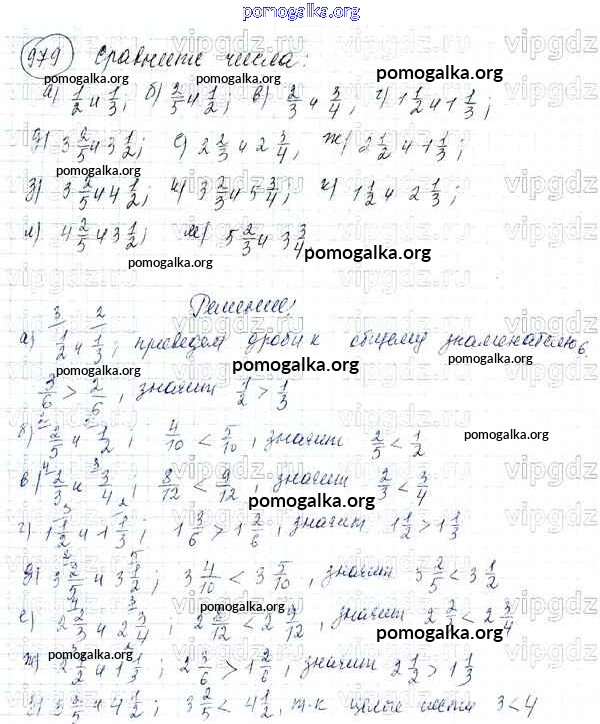 pomogalka.org
979 Сравните числа:
а) 1/2 и 1/3; б) 2/5 и 1/2; в) 2/3 и 3/4; г) 1 1/2 и 1 1/3;
д) 3 2/5 и 3 1/2; е) 2 2/3 и 2 3/4; ж) 2 1/2 и 1 1/3;
з) 3 2/5 и 4 1/2; и) 3 2/3 и 5 3/4; к) 1 1/2 и 2 1/3;
л) 4 2/5 и 3 1/2; м) 5 2/3 и 3 3/4.
Решение:
а) 1/2 и 1/3; приведем дроби к общему знаменателю 6.
3/6 > 2/6, значит 1/2 > 1/3
б) 2/5 и 1/2; 4/10 < 5/10, значит 2/5 < 1/2
в) 2/3 и 3/4; 8/12 < 9/12, значит 2/3 < 3/4
г) 1 1/2 и 1 1/3; 1 3/6 > 1 2/6, значит 1 1/2 > 1 1/3
д) 3 2/5 и 3 1/2; 3 4/10 < 3 5/10, значит 3 2/5 < 3 1/2
е) 2 2/3 и 2 3/4; 2 8/12 < 2 9/12, значит 2 2/3 < 2 3/4
ж) 2 1/2 и 1 1/3; 2 3/6 > 1 2/6, значит 2 1/2 > 1 1/3
з) 3 2/5 и 4 1/2; 3 2/5 < 4 1/2, т.к целые части 3 < 4